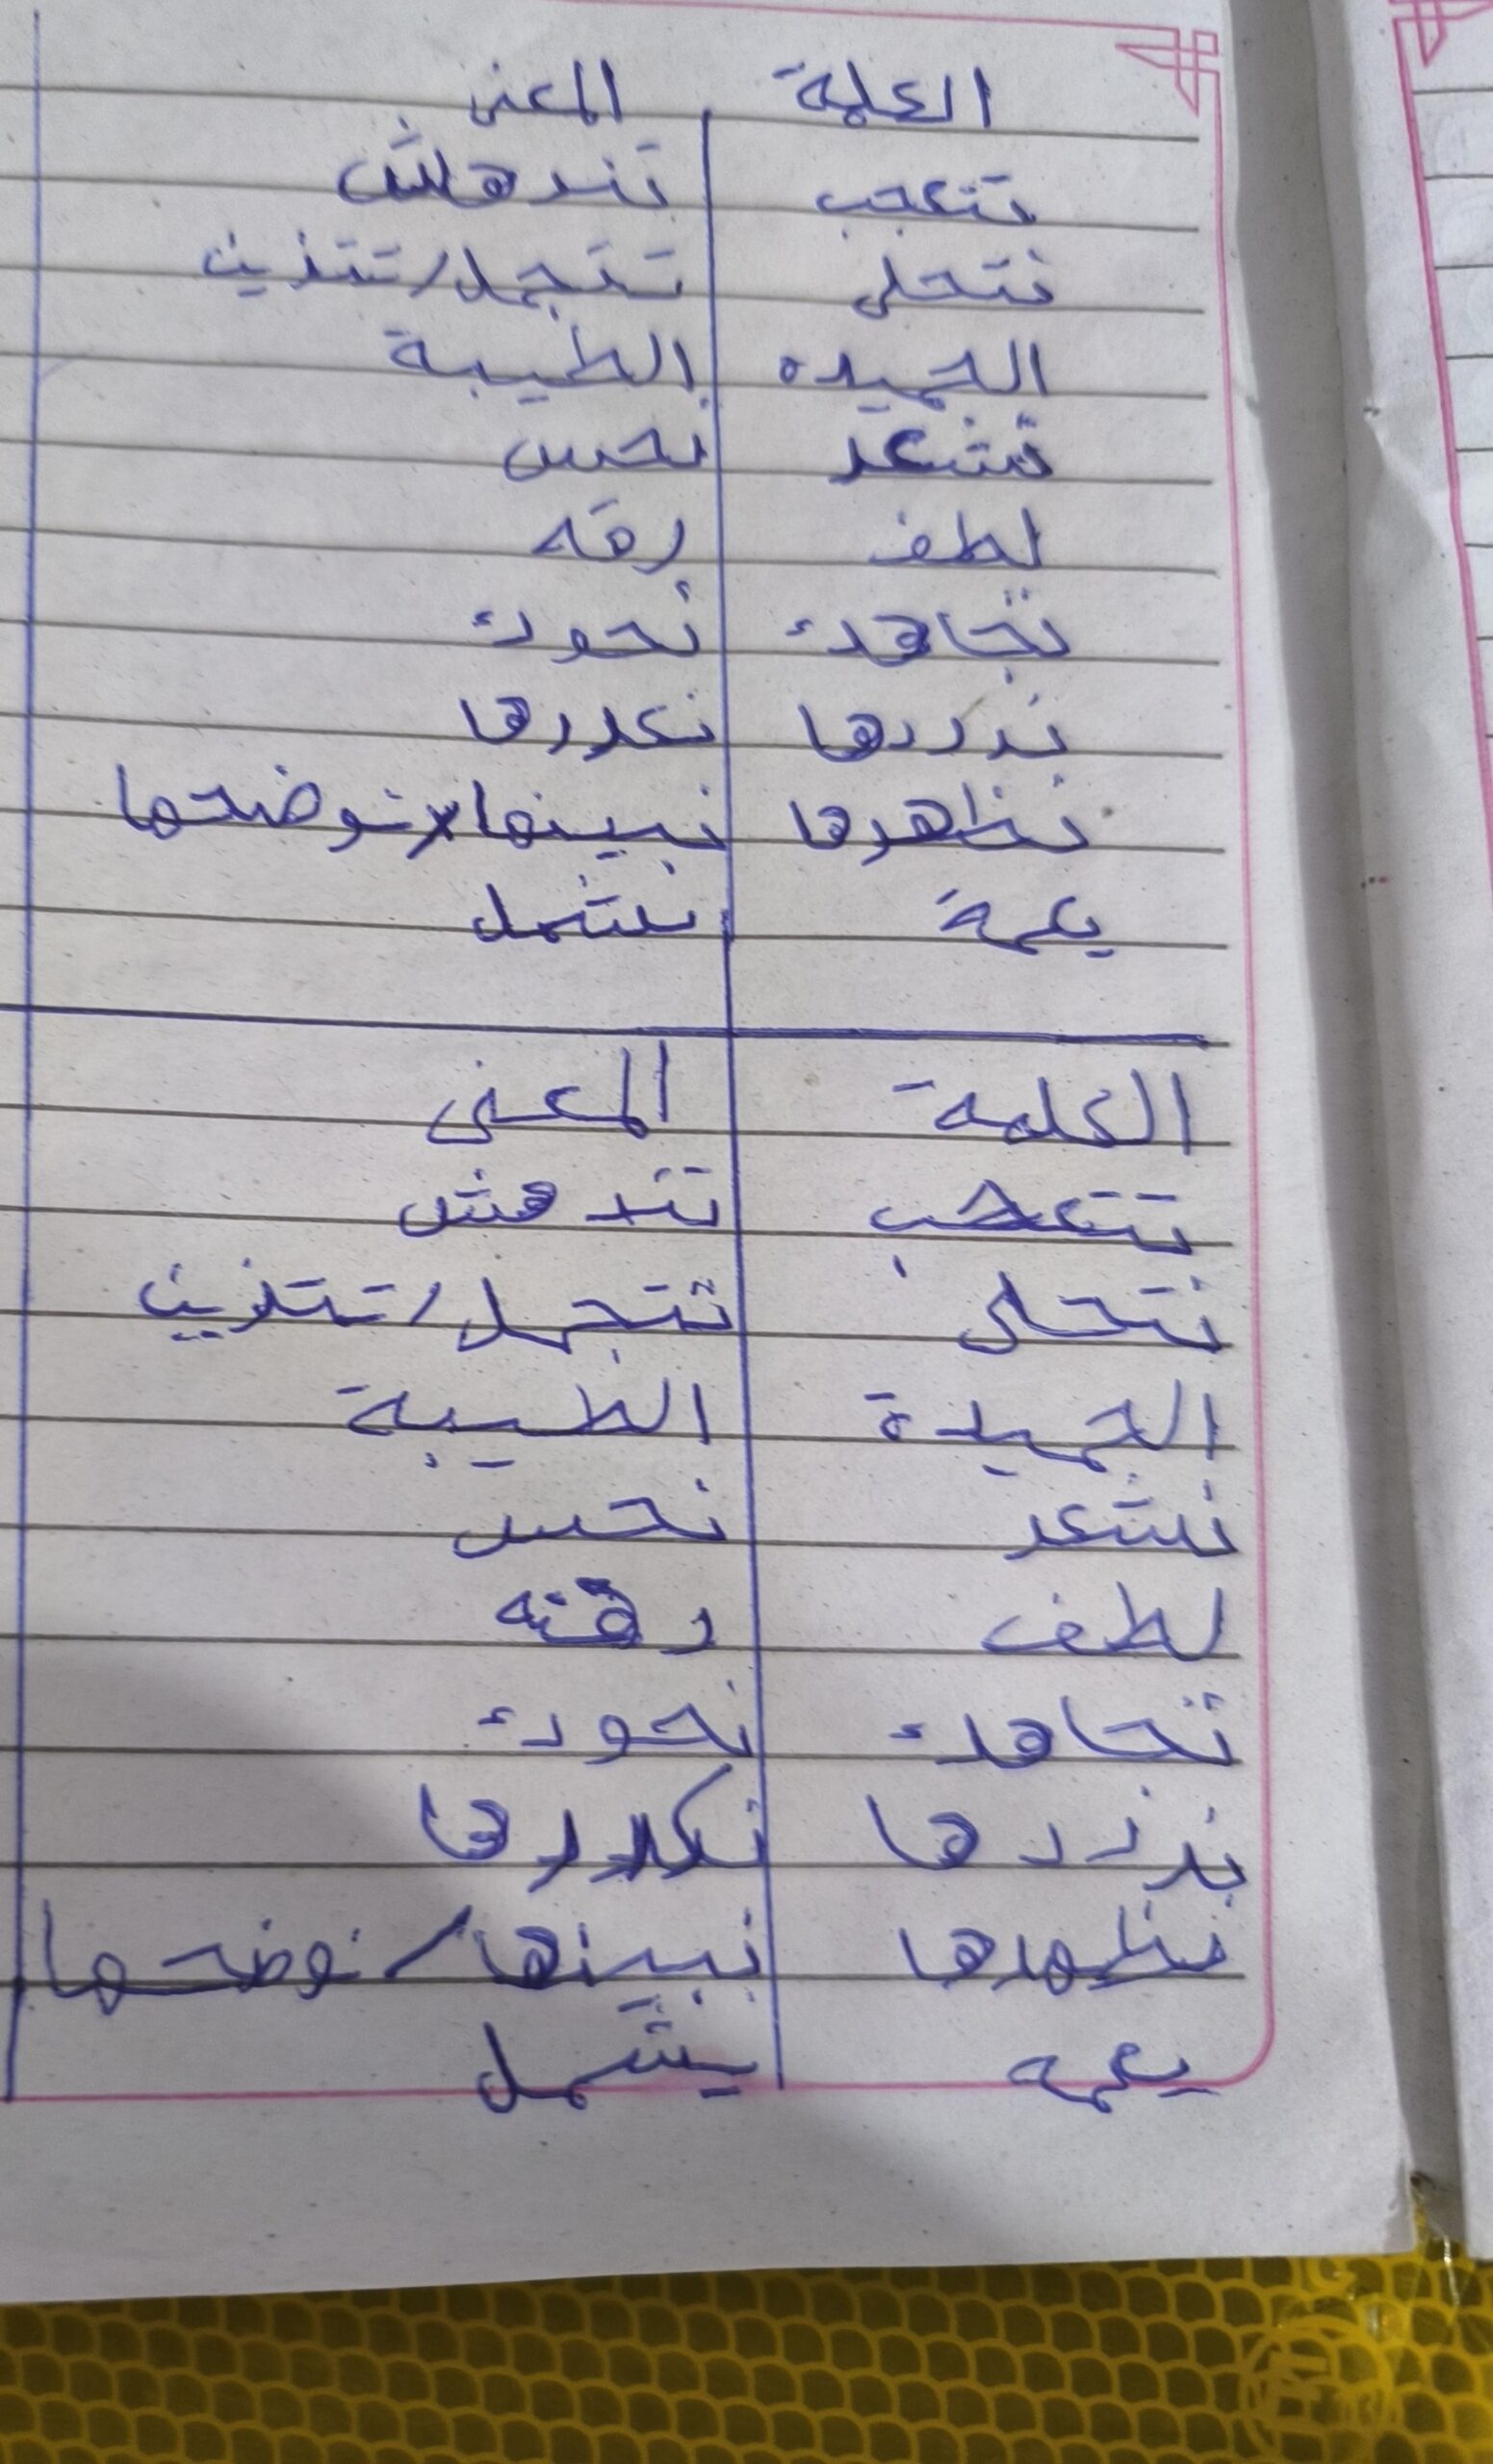 الكلمة المعنى
تتعجب تندهش
نتحلى تتجمل / تتزين
الحميده الطيبة
نشعر نحس
لطف رقه
تجاهك نحوك
نرددها نكررها
نظاهرها نبينها / نوضحها
يعمة يشمل
الكلمة المعنى
تتعجب تندهش
نتحلى تتجمل / تتزين
الحميدة الطيبة
نشعر نحس
لطف رقته
تجاهك نحوك
نرددها نكررها
نظهرها نبينها / نوضحها
يعمه يشمل